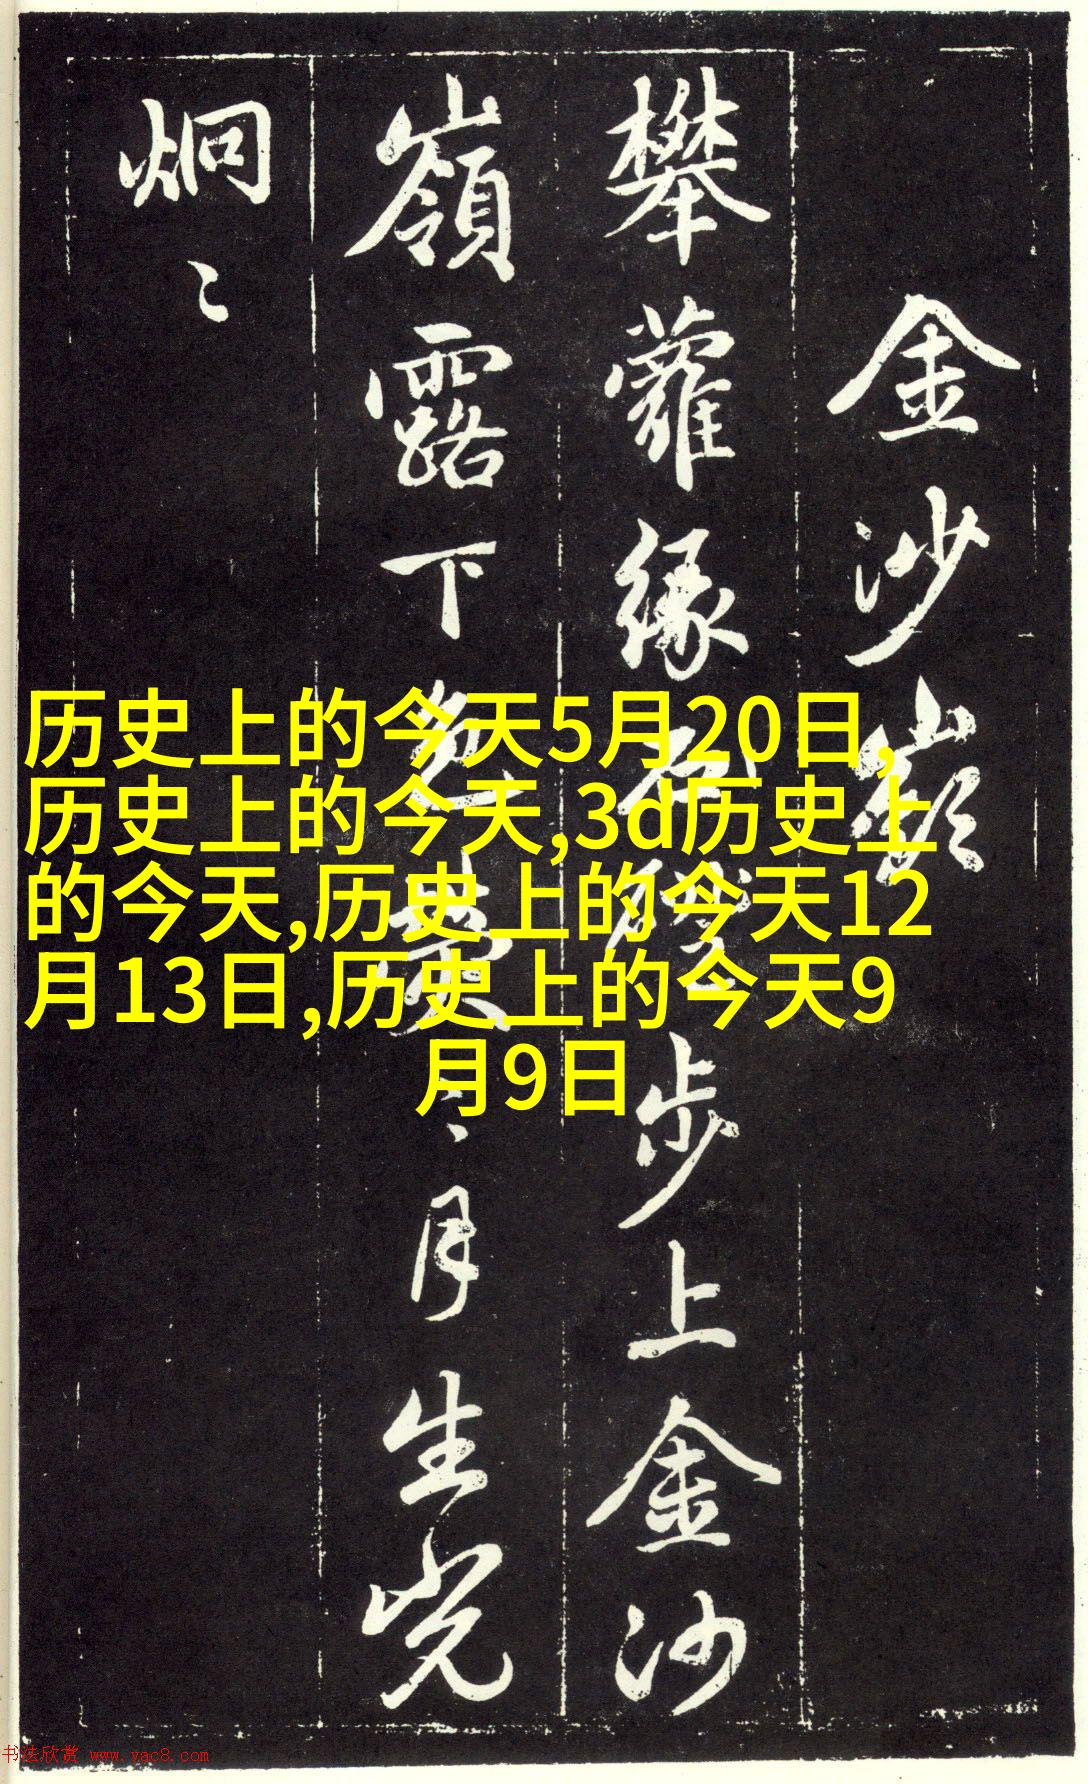 金沙嶺
攀蘿緣石磴步上金沙
嶺露下月生光
炯〻
历史上的今天5月20日,
历史上的今天,3d历史上
的今天,历史上的今天12
月13日,历史上的今天9
月9日
书法欣赏 www.yac8.com